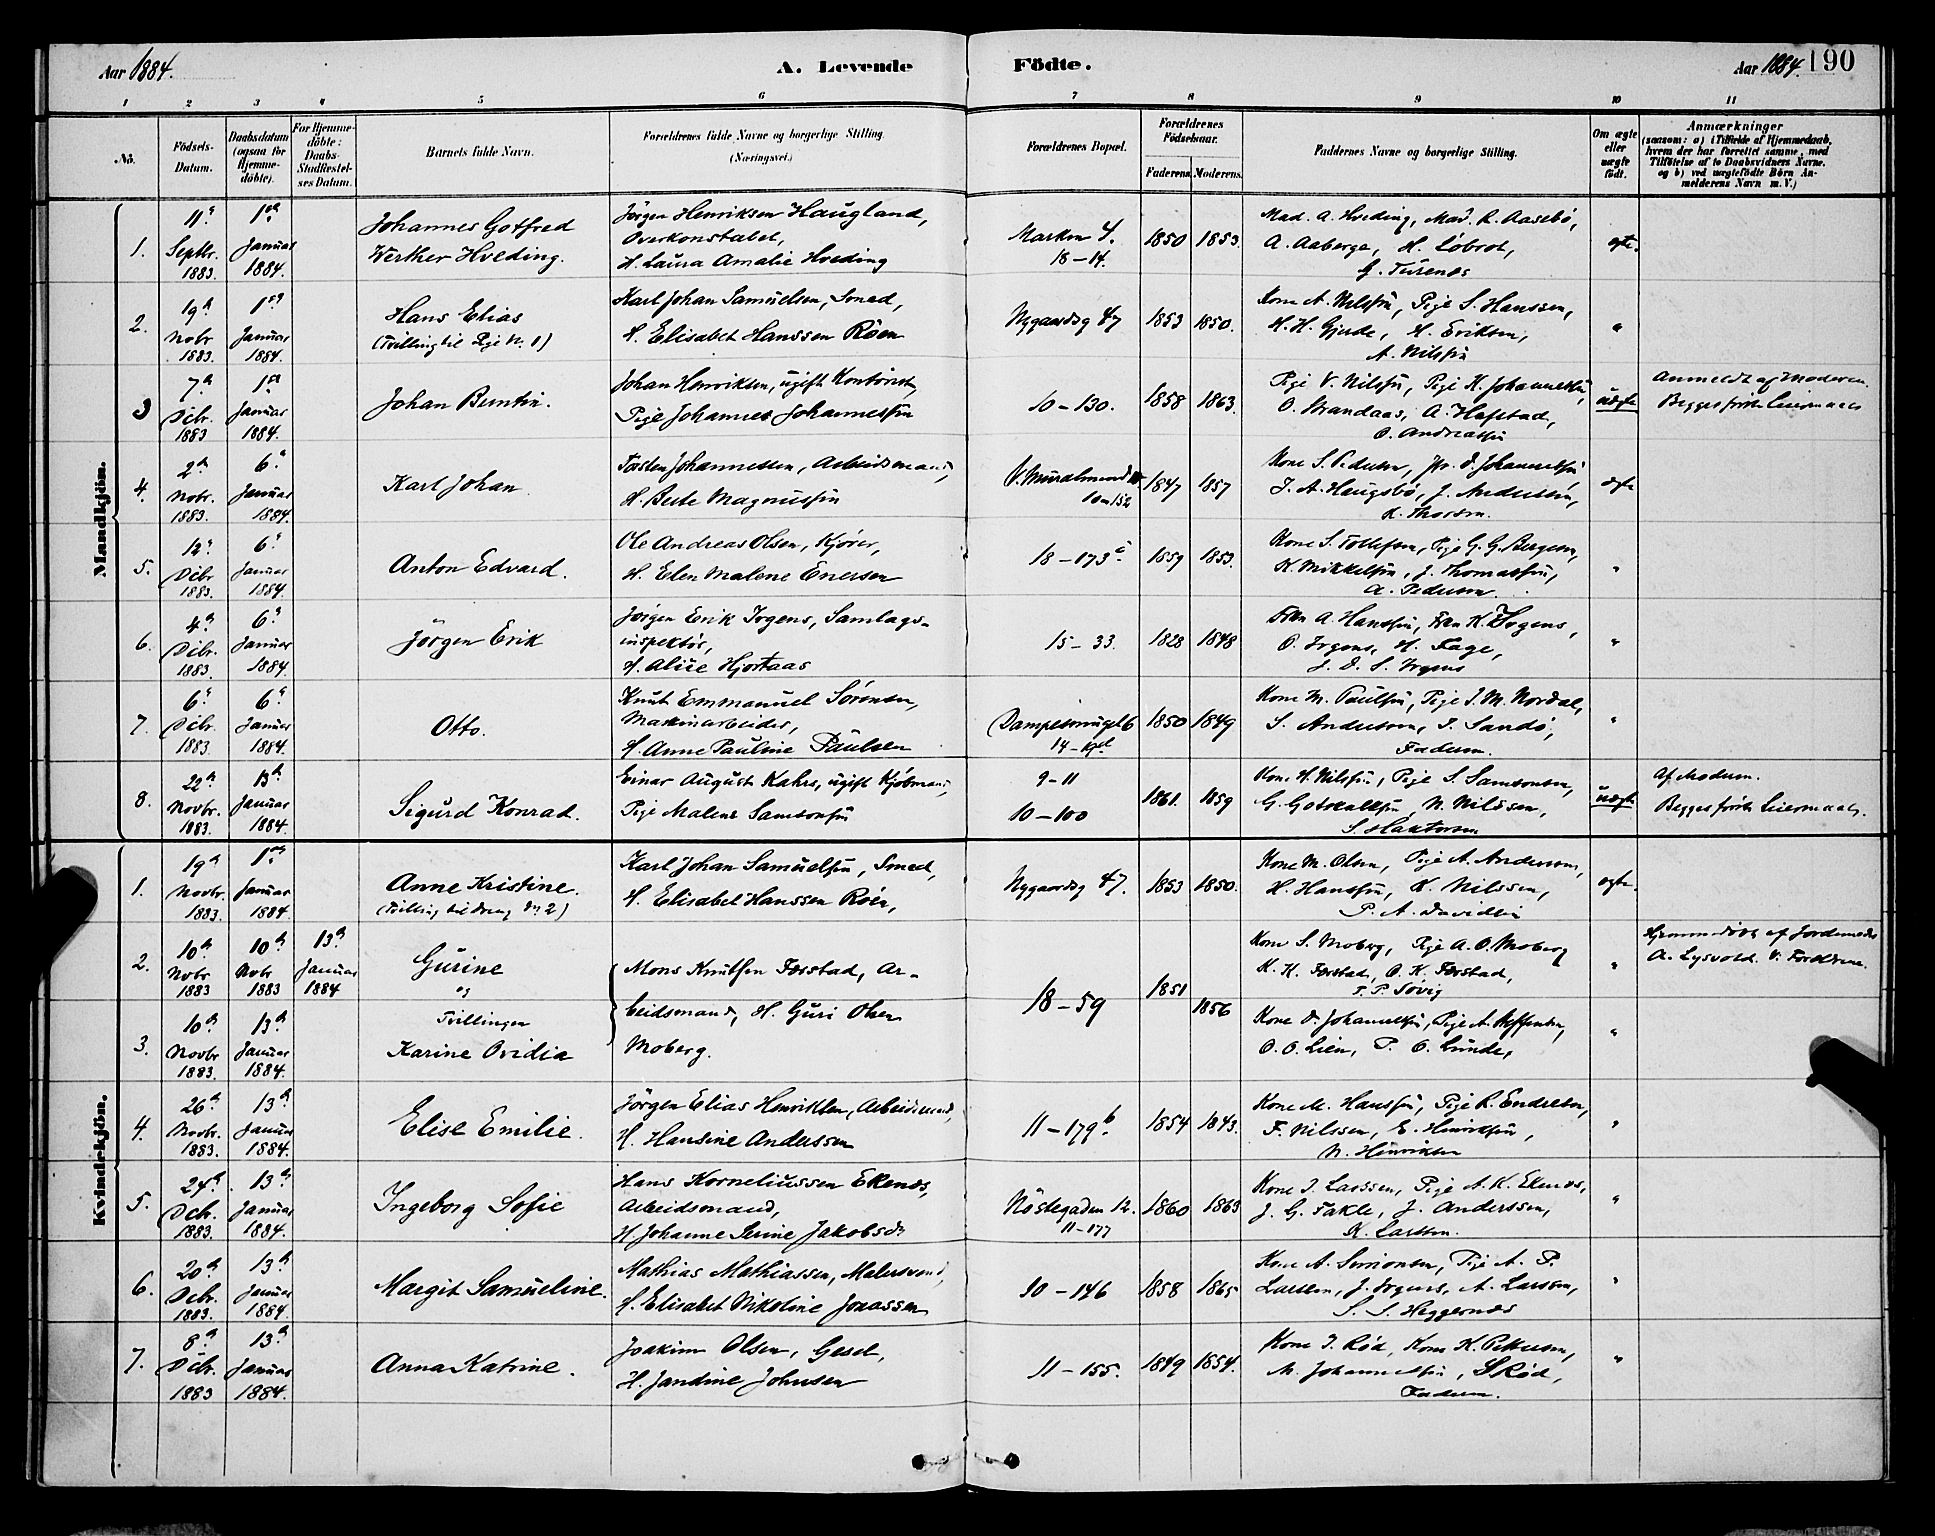 Aar 1884.
A. Levende Födte.
Aar 1884. 190
1 2 3 4 5 6 7 8 9 10 11
No.
Födsels-Datum.
Daabsdatum (ogsaa for Hjemme-döbte).
For Hjemme-döbte: Daabs-Stadfæstel-ses Datum.
Barnets fulde Navn.
Forældrenes fulde Navne og borgerlige Stilling. (Næringsvei.)
Forældrenes Bopæl.
Forældrenes Födselsaar.
Faderens. Moderens.
Faddernes Navne og borgerlige Stilling.
Om ægte eller uægte födt.
Anmærkninger
(saasom: a) i Tilfælde af Hjemmedaab, hvem der har forrettet samme, med Tilföielse af to Daabsvidners Navne, og b) ved uægtefödte Börn An-melderens Navn m. V.)
Mandkjön.
1. 11 Septbr. 1883. 1 Januar 1884.
Johannes Gotfred
Werther Hveding.
Jörgen Henriksen Haugland,
Overkonstabel,
H. Laura Amalie Hveding
Marken 4.
18-14.
1850 1853.
Mad. A. Hveding, Mad. R. Aasebö,
A. Aaberge, H. Löbrot,
ægte.
2. 19 Novbr 1883. 1 Januar 1884.
Hans Elias
(Tvilling til Pige No. 1)
Karl Johan Samuelsen, Smed,
H. Elisabet Hanssen Röen
Nygaardsg 47 1853 1850.
Kone A. Nilssen, Pige S. Hanssen,
H. H. Gjerde, H. Eriksen,
A. Nilssen
"
3 7 Dcbr. 1883 1 Januar 1884.
Johan Buntin.
Johan Henriksen, ugift Kontorist,
Pige Johanne Johannessen
10-130. 1858 1863.
Pige V. Nilssen, Pige K. Johannessen,
O. Strandaas, A. Hafstad,
O. Andreassen
uægte
Anmeldt af Moderen.
Begges förste Leiermaal
4. 2 Novbr. 1883. 6 Januar 1884.
Karl Johan
Torsten Johannessen, Arbeidsmand,
H. Berte Magnussen
10-152
1847 1857
Kone S. Pedersen,
J. A. Haugsbö, J. Andersen,
K. Thorsen.
ægte
5. 12 Dcbr 1883. 6 Januar 1884.
Anton Edvard.
Ole Andreas Olsen, Kjörer,
H. Elen Malene Enersen
18-173 1859 1853.
Kone S. Tollefsen, Pige G. G. Bergesen,
K. Mikkelsen, J. Thomassen,
A. Pedersen.
"
6. 4 Dcbr. 1883. 6 Januar 1884.
Jörgen Erik
Jörgen Erik Irgens, Samlags-
inspektör,
H. Alice Hjortaas
15-33. 1828 1848
Frk A. Hanssen, Frk K. Irgens,
O. Irgens, H. Fage,
J. D. S. Irgens
"
7. 6 Dcbr. 1883 6 Januar 1884.
Otto.
Knut Emmanuel Sörensen,
Maskinarbeider,
H. Anne Pauline Paulsen
1850 1849
Kone M. Paulsen, Pige J. M. Nordal,
S. Andersen, P. Sandö,
Faderen.
"
8. 22 Novbr. 1883. 13 Januar 1884.
Sigurd Konrad.
Einar August Kahrs, ugift Kjöbmand,
Pige Malene Samsonsen
9-11
10-100
1861. 1859
Kone H. Nilssen, Pige S. Samsonsen,
G. Gotskalksen, N. Nilssen,
S. Haktorsen
uægte
Af Moderen.
Begges förste Leiermaal.
Kvindekjön.
1. 19 Novbr. 1883. 1 Januar 1884.
Anne Kristine.
(Tvilling til Dreng No 2)
Karl Johan Samuelsen, Smed,
H. Elisabet Hanssen Röen,
Nygaardsg 47. 1853 1850.
Kone M. Olsen, Pige A. Andersen,
H. Hanssen, K. Nilssen,
P. A. Davidsen
ægte.
2. 10 Novbr 1883 10 Novbr 1883 13 Januar 1884
Gurine
og
Tvillinger
Mons Knutsen Færstad, Ar-
beidsmand, H. Guri Olsen
Moberg.
18-59
1851
1856
Kone S. Moberg, Pige A. O. Moberg
K. K. Færstad, O. K. Færstad,
T. P. Sövig
"
Hjemmedöbt af Jordemoder
A. Lysvold. V. Forældrene.
3. 10 Novbr 1883. 13 Januar 1884.
Karine Ovidia
Kone D. Johannessen, Pige A. Steffensen,
O. O. Lien, P. O. Lunde,
"
4. 26 Novbr. 1883. 13 Januar 1884.
Elise Emilie.
Jörgen Elias Henriksen, Arbeidsmand,
H. Hansine Anderssen
11-179 b. 1854 1843.
Kone M. Hanssen, Pige R. Endresen,
F. Nilssen, E. Henriksen,
N. Henriksen
"
5. 24 Dcbr. 1883. 13 Januar 1884.
Ingeborg Sofie
Hans Korneliussen Ekenæs,
Arbeidsmand,
H. Johanne Serine Jakobsdr
Nöstegaden 12.
11-177
1860 1863
Kone J. Larssen, Pige A. K. Ekenæs,
J. G. Fakle, J. Anderssen,
K. Larssen.
"
6. 20 Dcbr. 1883. 13 Januar 1884
Margit Samueline.
Mathias Mathiassen, Malersvend,
H. Elisabet Nikoline Jonassen
10-146 1858 1865
Kone A. Simonsen, Pige A. P.
Larsen, J. Irgens, A. Larsen,
S. S. Heggernæs
"
7. 8 Dcbr. 1883 13 Januar 1884.
Anna Katrine.
Joakim Olsen, Gesel,
H. Jandine Johnsen
11-155. 1849 1854.
Kone J. Röd, Kone K. Petersen,
M. Johannessen, S Röd,
Faderen.
"